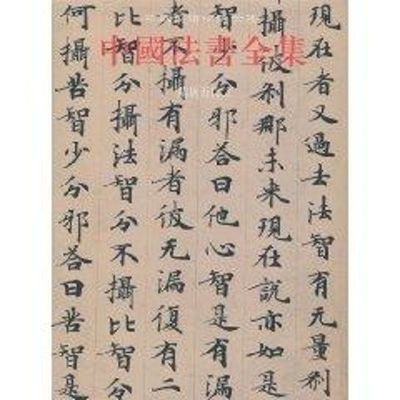 中國法書全集
現在者又過去法智有无量剎
攝彼剎那未來現在說亦如是
智少分邪答曰他心智是有漏
者不攝有漏者彼无漏復有二
比智分攝法智分不攝比智分
何攝苦智少分邪答曰苦智是